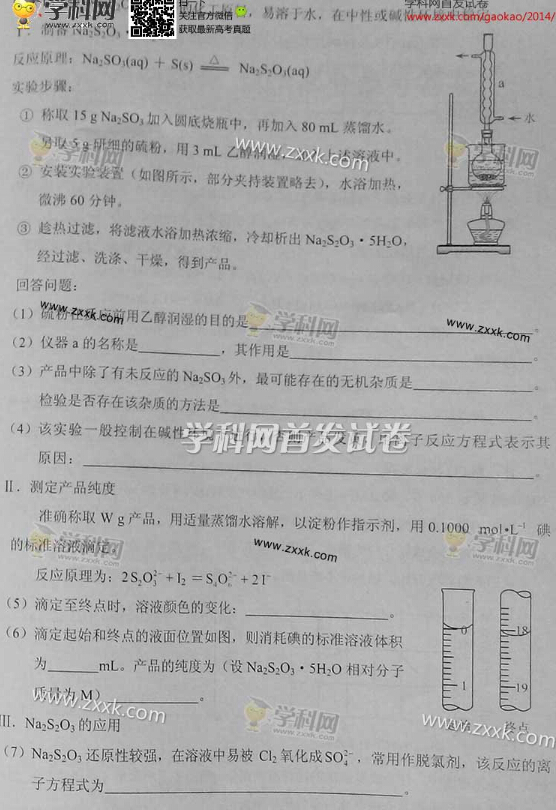 学科网首发试卷
www.zxxk.com/gaokao/2014/
关注官方微信
获取最新高考真题
易溶于水，在中性或碱性
制备 Na₂S₂O₃
反应原理：Na₂SO₃(aq) + S(s) △ Na₂S₂O₃(aq)
实验步骤：
① 称取 15 g Na₂SO₃加入圆底烧瓶中，再加入 80 mL 蒸馏水。
另取 5 g 研细的硫粉，用 3 mL 乙醇润湿，上述溶液中。
② 安装实验装置（如图所示，部分夹持装置略去），水浴加热，
微沸 60 分钟。
③ 趁热过滤，将滤液水浴加热浓缩，冷却析出 Na₂S₂O₃·5H₂O，
经过滤、洗涤、干燥，得到产品。
a
水
回答问题：
（1）硫粉在反应前用乙醇润湿的目的是 。
（2）仪器 a 的名称是 ，其作用是 。
（3）产品中除了有未反应的 Na₂SO₃ 外，最可能存在的无机杂质是 。
检验是否存在该杂质的方法是 。
（4）该实验一般控制在碱性 子反应方程式表示其
原因： 。
Ⅱ．测定产品纯度
准确称取 W g 产品，用适量蒸馏水溶解，以淀粉作指示剂，用 0.1000 mol·L⁻¹ 碘
的标准溶液滴定。
反应原理为：2S₂O₃²⁻ + I₂ = S₄O₆²⁻ + 2I⁻
（5）滴定至终点时，溶液颜色的变化： 。
（6）滴定起始和终点的液面位置如图，则消耗碘的标准溶液体积
为 mL。产品的纯度为（设 Na₂S₂O₃·5H₂O 相对分子
质量为 M） 。
0
1
18
19
起始 终点
Ⅲ．Na₂S₂O₃ 的应用
（7）Na₂S₂O₃ 还原性较强，在溶液中易被 Cl₂ 氧化成 SO₄²⁻，常用作脱氯剂，该反应的离
子方程式为 。
学科网
www.zxxk.com
学科网首发试卷